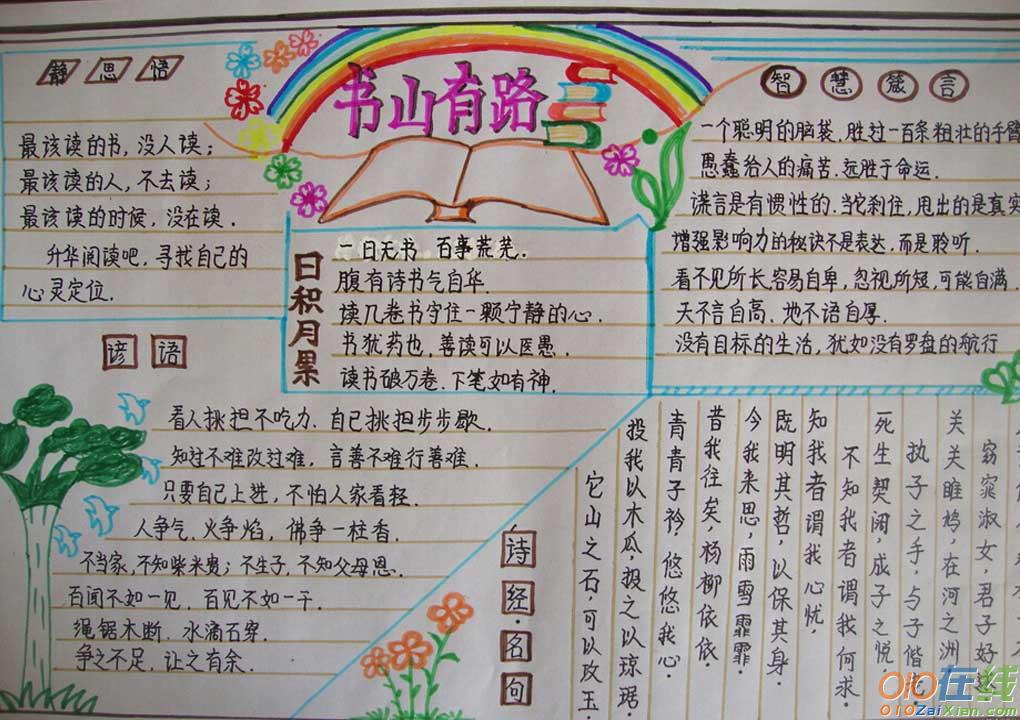 静思悟
最该读的书，没人读；
最该读的人，不去读；
最该读的时候，没在读．
升华阅读吧，寻找自己的
心灵定位．
书山有路
日积月累
一日无书 百事荒芜．
腹有诗书气自华．
读几卷书守住一颗宁静的心．
书犹药也，善读可以医愚．
读书破万卷．下笔如有神．
智慧箴言
一个聪明的脑袋，胜过一百条粗壮的手臂
愚蠢给人的痛苦．远胜于命运．
谎言是有惯性的．当它刹住，甩出的是真实
增强影响力的秘诀不是表达，而是聆听．
看不见所长，容易自卑，忽视所短，可能自满．
天不言自高．地不语自厚．
没有目标的生活，犹如没有罗盘的航行
谚语
看人挑担不吃力．自己挑担步步歇．
知过不难改过难，言善不难行善难．
只要自己上进，不怕人家看轻．
人争气，火争焰，佛争一柱香．
不当家，不知柴米贵；不生子，不知父母恩．
百闻不如一见，百见不如一干．
绳锯木断．水滴石穿．
争之不足，让之有余．
诗经·名句
窈窕淑女，君子好逑
关关雎鸠，在河之洲
执子之手，与子偕老
死生契阔，成子之悦，
不知我者谓我何求．
知我者谓我心忧，
既明其哲，以保其身．
今我来思，雨雪霏霏．
昔我往矣，杨柳依依．
青青子衿，悠悠我心．
投我以木瓜．报之以琼琚．
它山之石，可以攻玉．
010在线
010ZaiXian.com